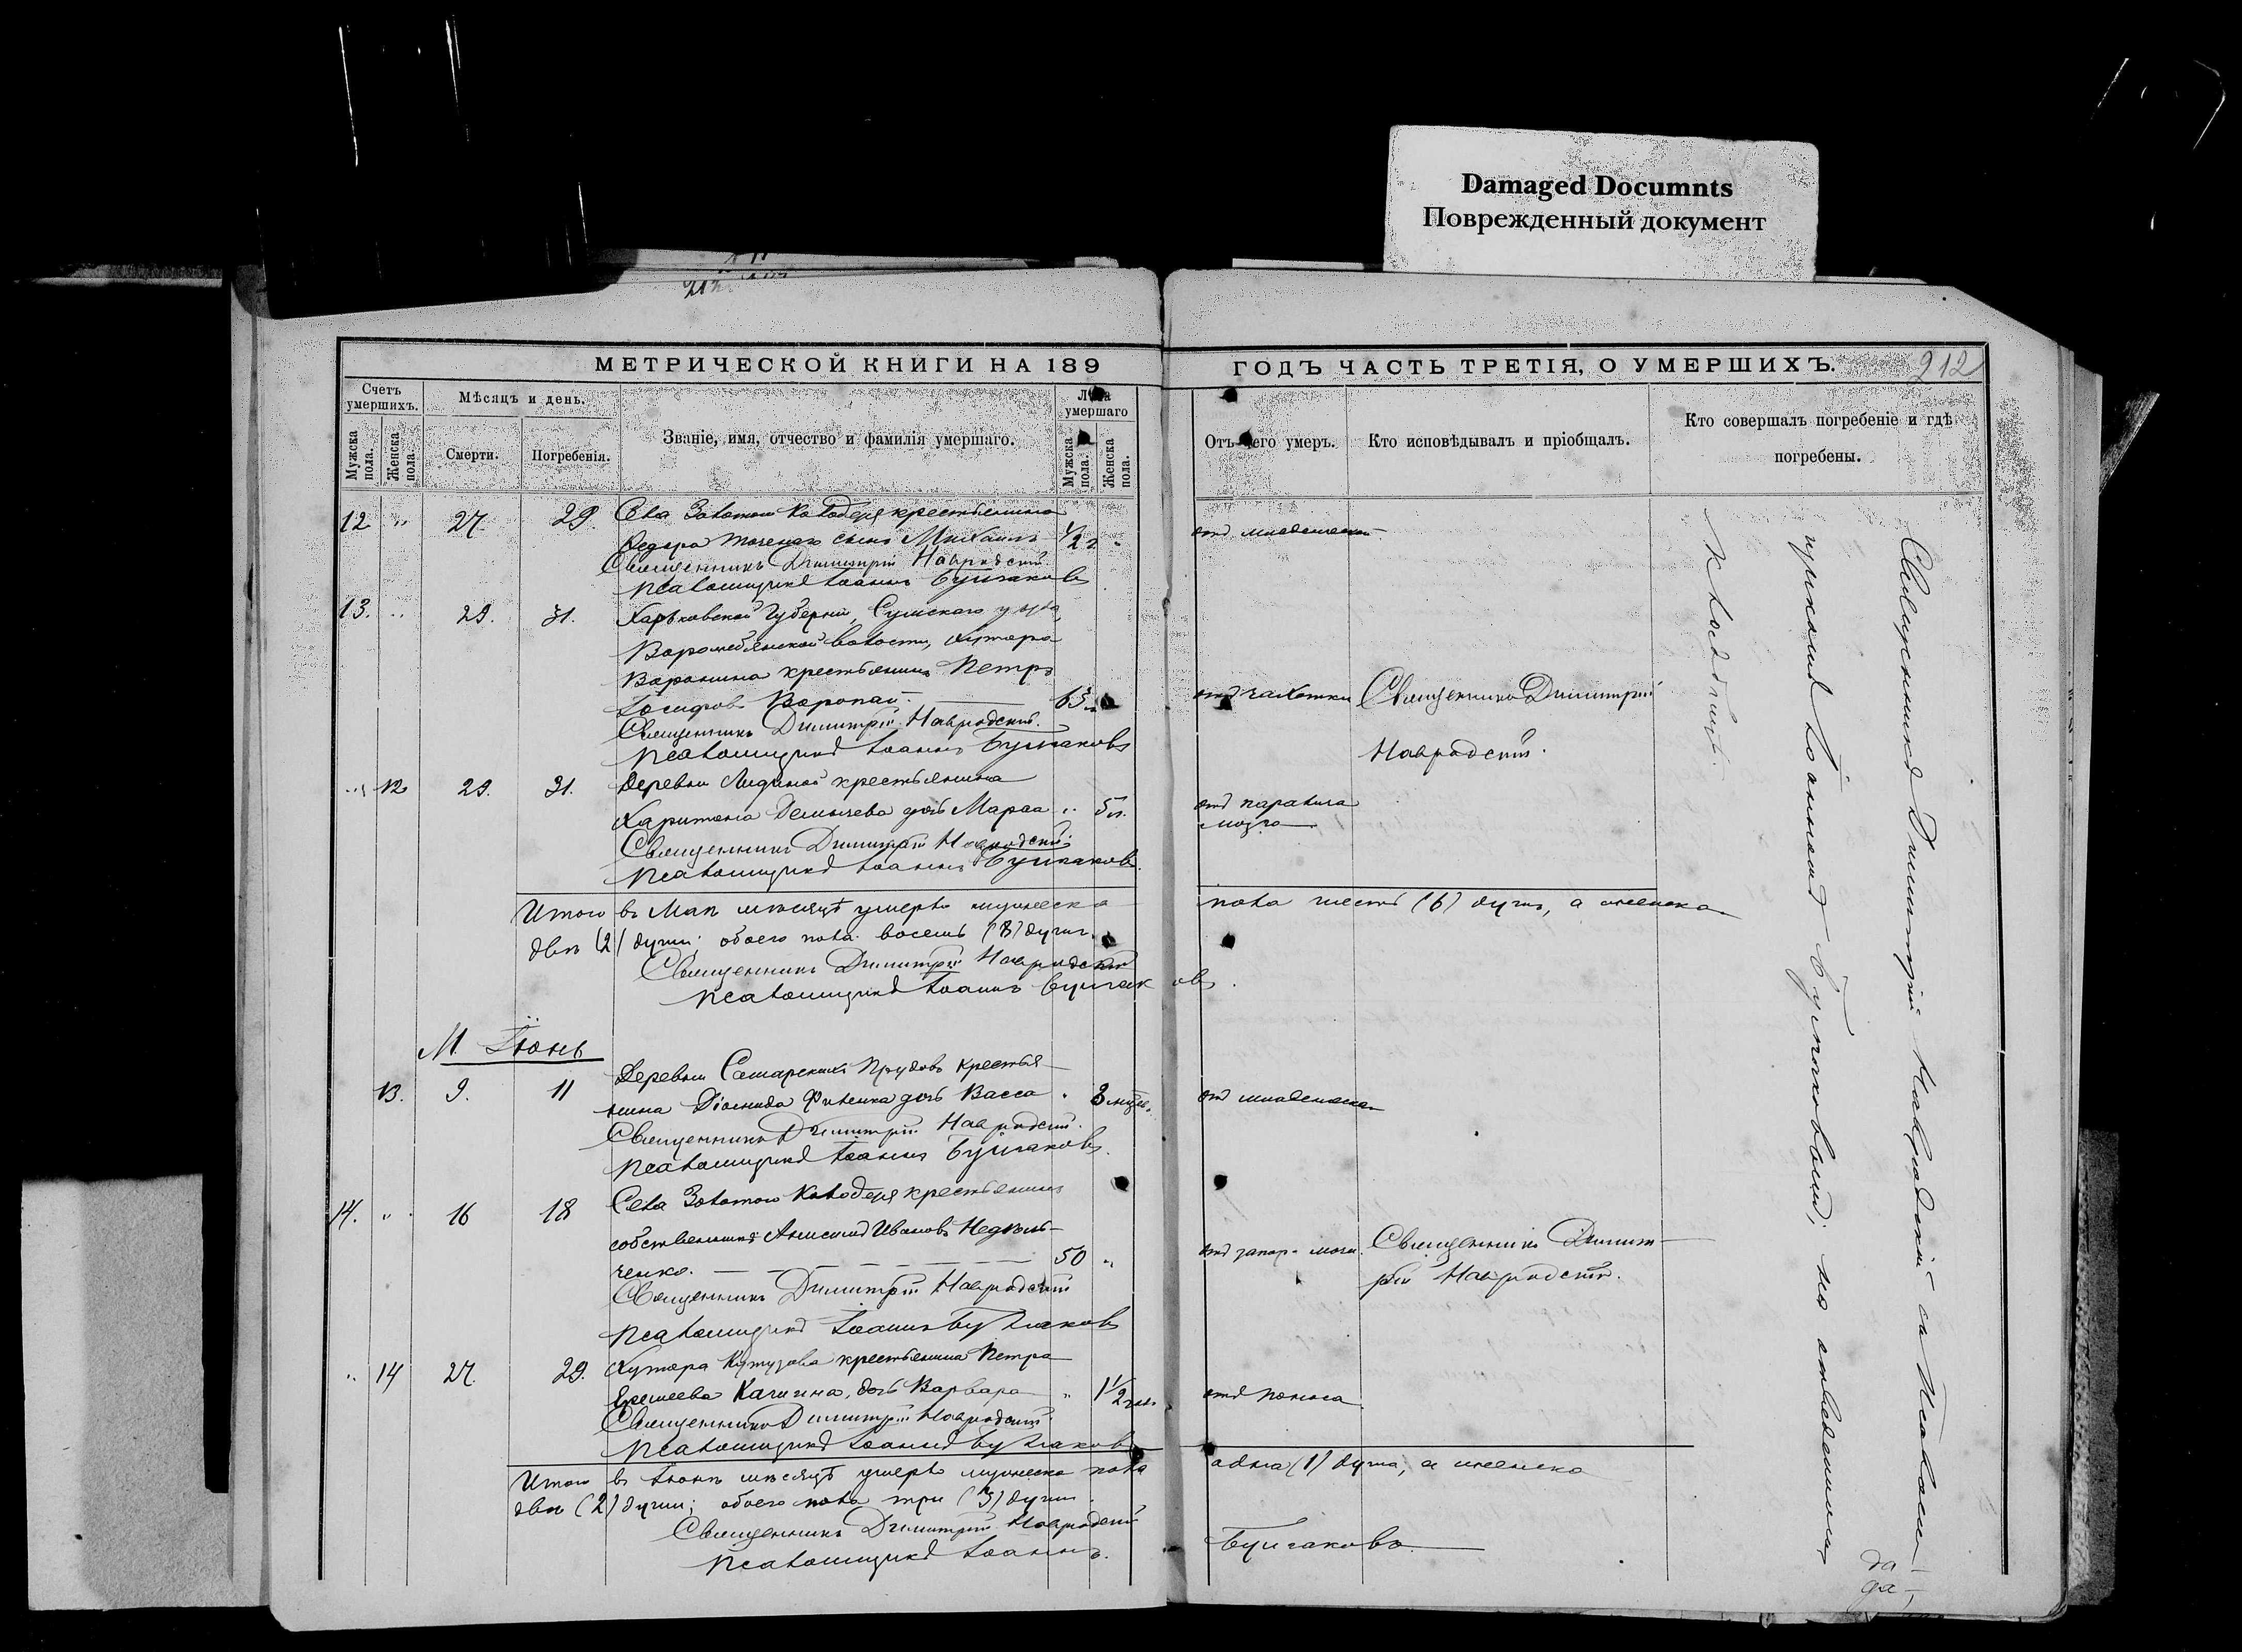 Damaged Documnts
Поврежденный документ
МЕТРИЧЕСКОЙ КНИГИ НА 189
ГОДЪ ЧАСТЬ ТРЕТІЯ, О УМЕРШИХЪ.
212
Счетъ умершихъ.
Мужска пола.
Женска пола.
Мѣсяцъ и день.
Смерти.
Погребенія.
Званіе, имя, отчество и фамилія умершаго.
Лѣта умершаго
Мужска пола.
Женска пола.
Отъ чего умеръ.
Кто исповѣдывалъ и пріобщалъ.
Кто совершалъ погребеніе и гдѣ погребены.
12 " 27. 29. Села Золотого Колодезя крестьянина
Федора сынъ Михаилъ 1/2 г. "
Священникъ Димитрій Навродскій
Псаломщикъ Іоаннъ Булгаковъ
13. " 29. 31. Харьковской Губерніи, Сумскаго уѣзда,
волости, хутора
крестьянинъ Петръ
Іосифовъ Воропай. 63
отъ чахотки Священникъ Димитрій
Навродскій.
Священникъ Димитрій Навродскій.
Псаломщикъ Іоаннъ Булгаковъ
" 12 29. 31. Деревни крестьянина
Харитона дочь Марѳа " 5 л. отъ паралича
мозга
Священникъ Димитрій Навродскій
Псаломщикъ Іоаннъ Булгаковъ.
Итого въ Маѣ мѣсяцѣ умерло мужеска пола шесть (6) душъ, а женска
двѣ (2) души; обоего пола восемь (8) душъ.
Священникъ Димитрій Навродскій
Псаломщикъ Іоаннъ Булгаковъ.
М. Іюнь
13. 9. 11 Деревни Самарскихъ Прудовъ крестья-
нина дочь Васса " 3 мѣс.
Священникъ Димитрій Навродскій.
Псаломщикъ Іоаннъ Булгаковъ.
14. " 16 18 Села Золотого Колодезя крестьянинъ
собственникъ Анисимъ Ивановъ
50 "
Священникъ Димит-
рій Навродскій.
Священникъ Димитрій Навродскій
Псаломщикъ Іоаннъ Булгаковъ
" 14 27. 29. Хутора Кутузова крестьянина Петра
дочь Варвара " 1 1/2 отъ поноса.
Священникъ Димитрій Навродскій
Псаломщикъ Іоаннъ Булгаковъ
Итого въ Іюнѣ мѣсяцѣ умерло мужеска пола одна (1) душа, а женска
двѣ (2) души; обоего пола три (3) души.
Священникъ Димитрій Навродскій
Псаломщикъ Іоаннъ Булгаковъ.
Священникъ Димитрій Навродскій съ Псалом-
щикомъ Іоанномъ Булгаковымъ; на отведенномъ
кладбищѣ.